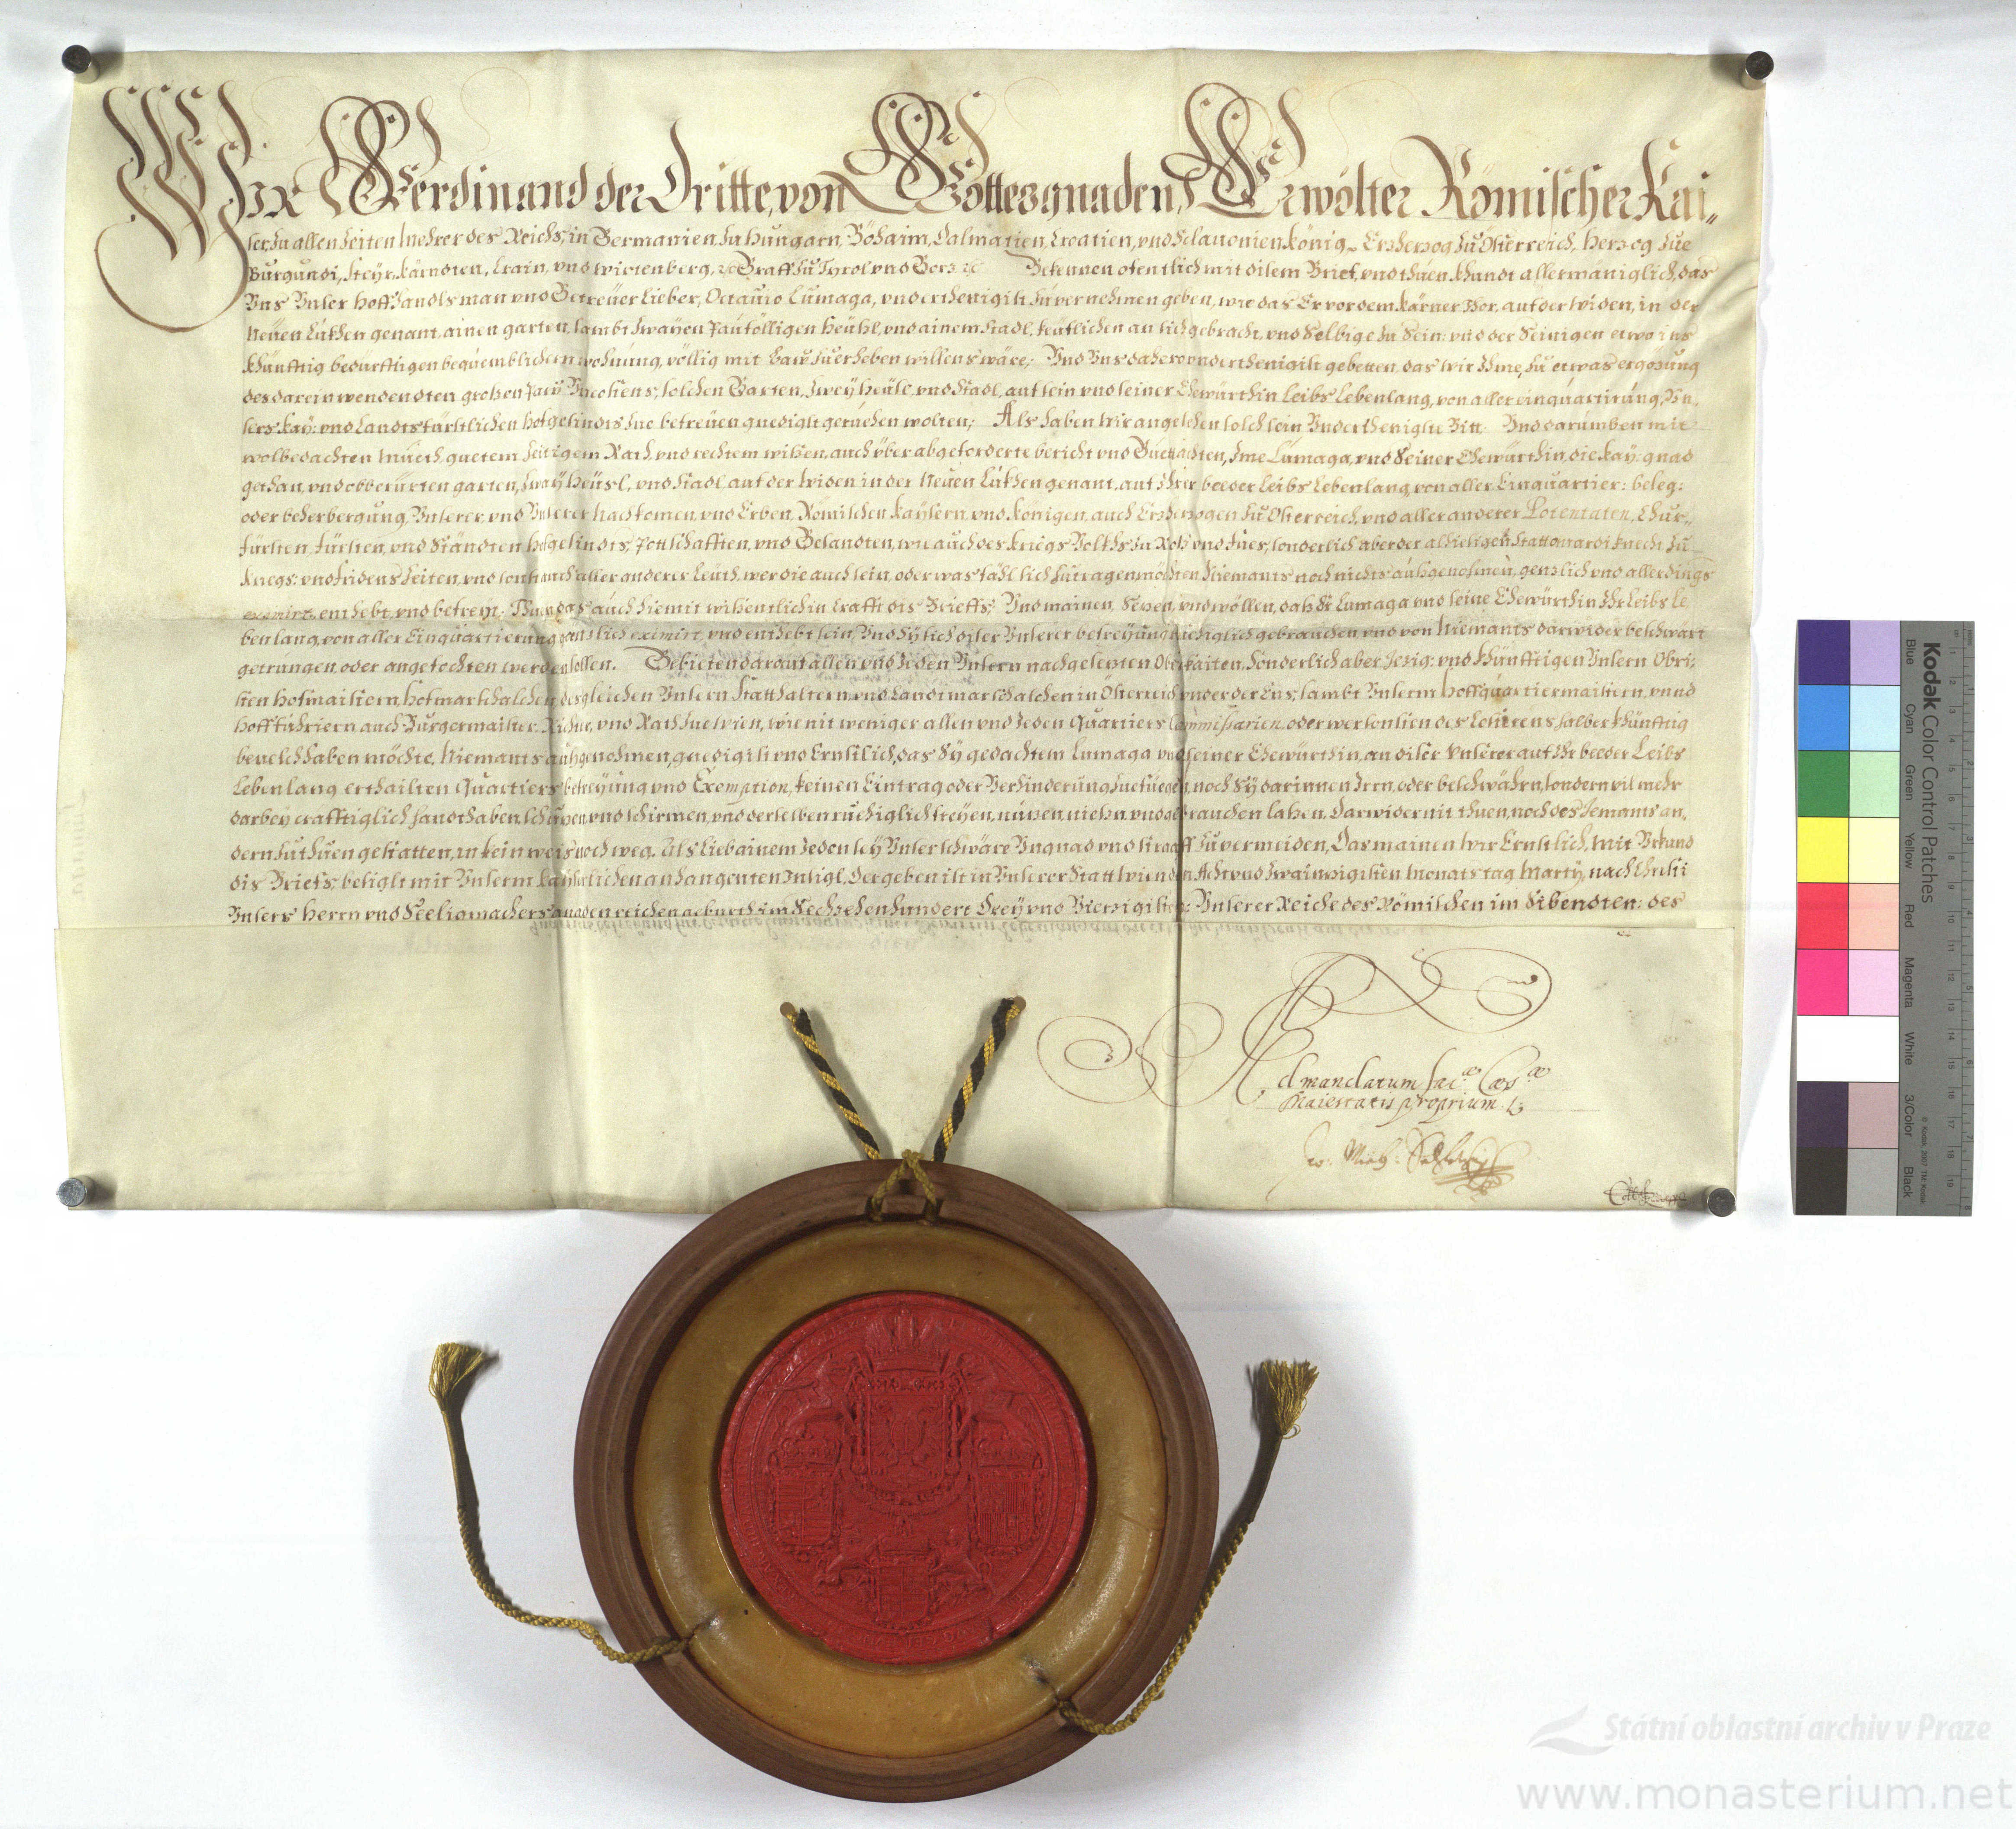 Wir Ferdinand der Dritte, von Gottes gnaden, Erwölter Römischer Kai„
ser, zu allen Zeiten Mehrer des Reichs, in Germanien, zu Hungarn, Böhaim, Dalmatien, Croatien, vnd Sclauonien könig, Erzherzog zu Österreich, Herzog zue
Burgundi, Steyr, kärndten, Crain, vnd wirtenberg, ꝛc Graff zu Tyrol vnd Gorz ꝛc Bekennen ofentlich mit disem Brief, vnd thuen khundt allermäniglich, das
Vns Vnser Hoff Handlsman vnd Getreüer Lieber, Octauio Lumaga, vnderthenigist zuvernehmen geben, wie das Er vor dem kärner Thor, auf der widen, in der
Neüen Lukhen genant, ainen garten, sambt zwayen Paufölligen heüßl, vnd ainem stadl, keüflichen an sich gebracht, vnd Selbige zu Sein: vnd der Seinigen etwo ins
khünfftig bedürfftigen bequemblichern wohnung, völlig mit Gaw zuerheben willens wäre, Vnd Vns dahero vnderthenigist gebetten, das wir Ihme, zu etwas ergözung
des darein wendendten grossen Paw Vncostens, solchen Garten, zwey heüsl, vnd stadl, auf sein vnd seiner Ehewürthin Leibs Lebenlang, von aller einquartirung, Vn„
sers kay: vnd Landtsfürstlichen hofgesindts zue befreüen gnedigst geruehen wolten; Als haben wir angesehen solch sein Vnderthenigste Bitt Vnd darumben mit
wolbedachten Mueth, guetem zeitigem Rath, vnd rechtem wißen, auch über abgeforderte bericht vnd Guetachten, Ime Lumaga, vnd Seiner Ehewürthin, die kay: gnad
gethan, vnd obberürten garten, zway heüsl, vnd stadl, auf der widen in der Neüen Lukhen genant, auf Ihrer beeder Leibs Lebenlang, von aller Einquartier: beleg:
oder beherbergung, Vnserer, vnd Vnserer Nachkomen, vnd Erben, Römischen kaysern, vnd königen, auch Erzherzogen zu Österreich, vnd aller anderer Potentaten, Chur„
fürsten, fürsten, vnd Ständten hofgesindts, Pottschafften, vnd Gesandten, wie auch des kriegs Volkhs zu Roß vnd fues, sonderlich aber der alhiesigen Stattquardi knecht, zu
kriegs: vnd fridens Zeiten, vnd sonst auch aller anderer Leüth, wer die auch sein, oder was fähl sich zutragen möchten, Niemants noch nichts außgenohmen, genzlich vnd allerdings
eximirt, enthebt, vnd befreyt; Thuen das auch hiemit wißentlich in crafft dis Brieffs; Vnd mainen, Sezen, vnd wöllen, daß Er Lumaga vnd seine Ehewürthin Ihr Leibs Le
benlang, von aller Einquartierung gänzlich eximirt, vnd enthebt sein, Vnd Sy sich diser Vnserer befreyung ruehiglich gebrauchen vnd von Niemants darwider beschwärt
getrungen, oder angefochten werden sollen. Gebieten darauf allen vnd Jeden Vnsern nachgesezten Obrikaiten, Sonderlich aber Jezig: vnd khünfftigen Vnsern Obri„
sten Hofmaistern, Hofmarschalchen, desgleichen Vnsern Statthaltern, vnd Landtmarschalchen in Österreich vnder der Ens, sambt Vnserm Hoffquartiermaistern, vnnd
Hoffuhriern, auch Burgermaister, Richter, vnd Rath zue Wien, wie nit weniger allen vnd Jeden Quartiers Commissarien, oder wer sonsten des halber khünfftig
beuelch haben möchte, Niemants außgenohmen, gnedigist vnd Ernstlich, das Sy gedachtem Lumaga vnd seiner Ehewürthin, an diser Vnserer auf Ihr beeder Leibs
Lebenlang erthailten Quartiers befreyung vnd Exemption, keinen Eintrag oder Verhinderung zuefüegen, noch Sy darinnen Irrn, oder beschwährn, sondern vil mehr
darbey crafftiglich handthaben, schuzen, vnd schirmen, vnd derselben ruehiglich freyen, nuzen, niessn, vnd gebrauchen laßen, Darwider nit thuen, noch des Jemants an„
dern zuthuen gestatten, in kein weis noch weg, Als Lieb ainem Jeden sey Vnser schwäre Vngnad vnd straff zuvermeiden, Das mainen wir Ernstlich, Mit Vrkund
dis Briefs, besiglt mit Vnserm kayserlichen anhangenten Insigl, Der geben ist in Vnserer Statt Wien den Acht vnd zwainzigisten Monats tag Marty, nach Christi
Vnsers Herrn vnd Seeligmachers gnadenreichen geburth im Sechzehenhundert Drey vnd Vierzigisten, Vnserer Reiche des Römischen im Sibendten: des
Ad mandatum Sac.ae Caes.ae
Maiestatis proprium
Kodak Color Control Patches
Blue Cyan Green Yellow Red Magenta White 3/Color Black
© Kodak, 2007 TM: Kodak
Státní oblastní archiv v Praze
www.monasterium.net